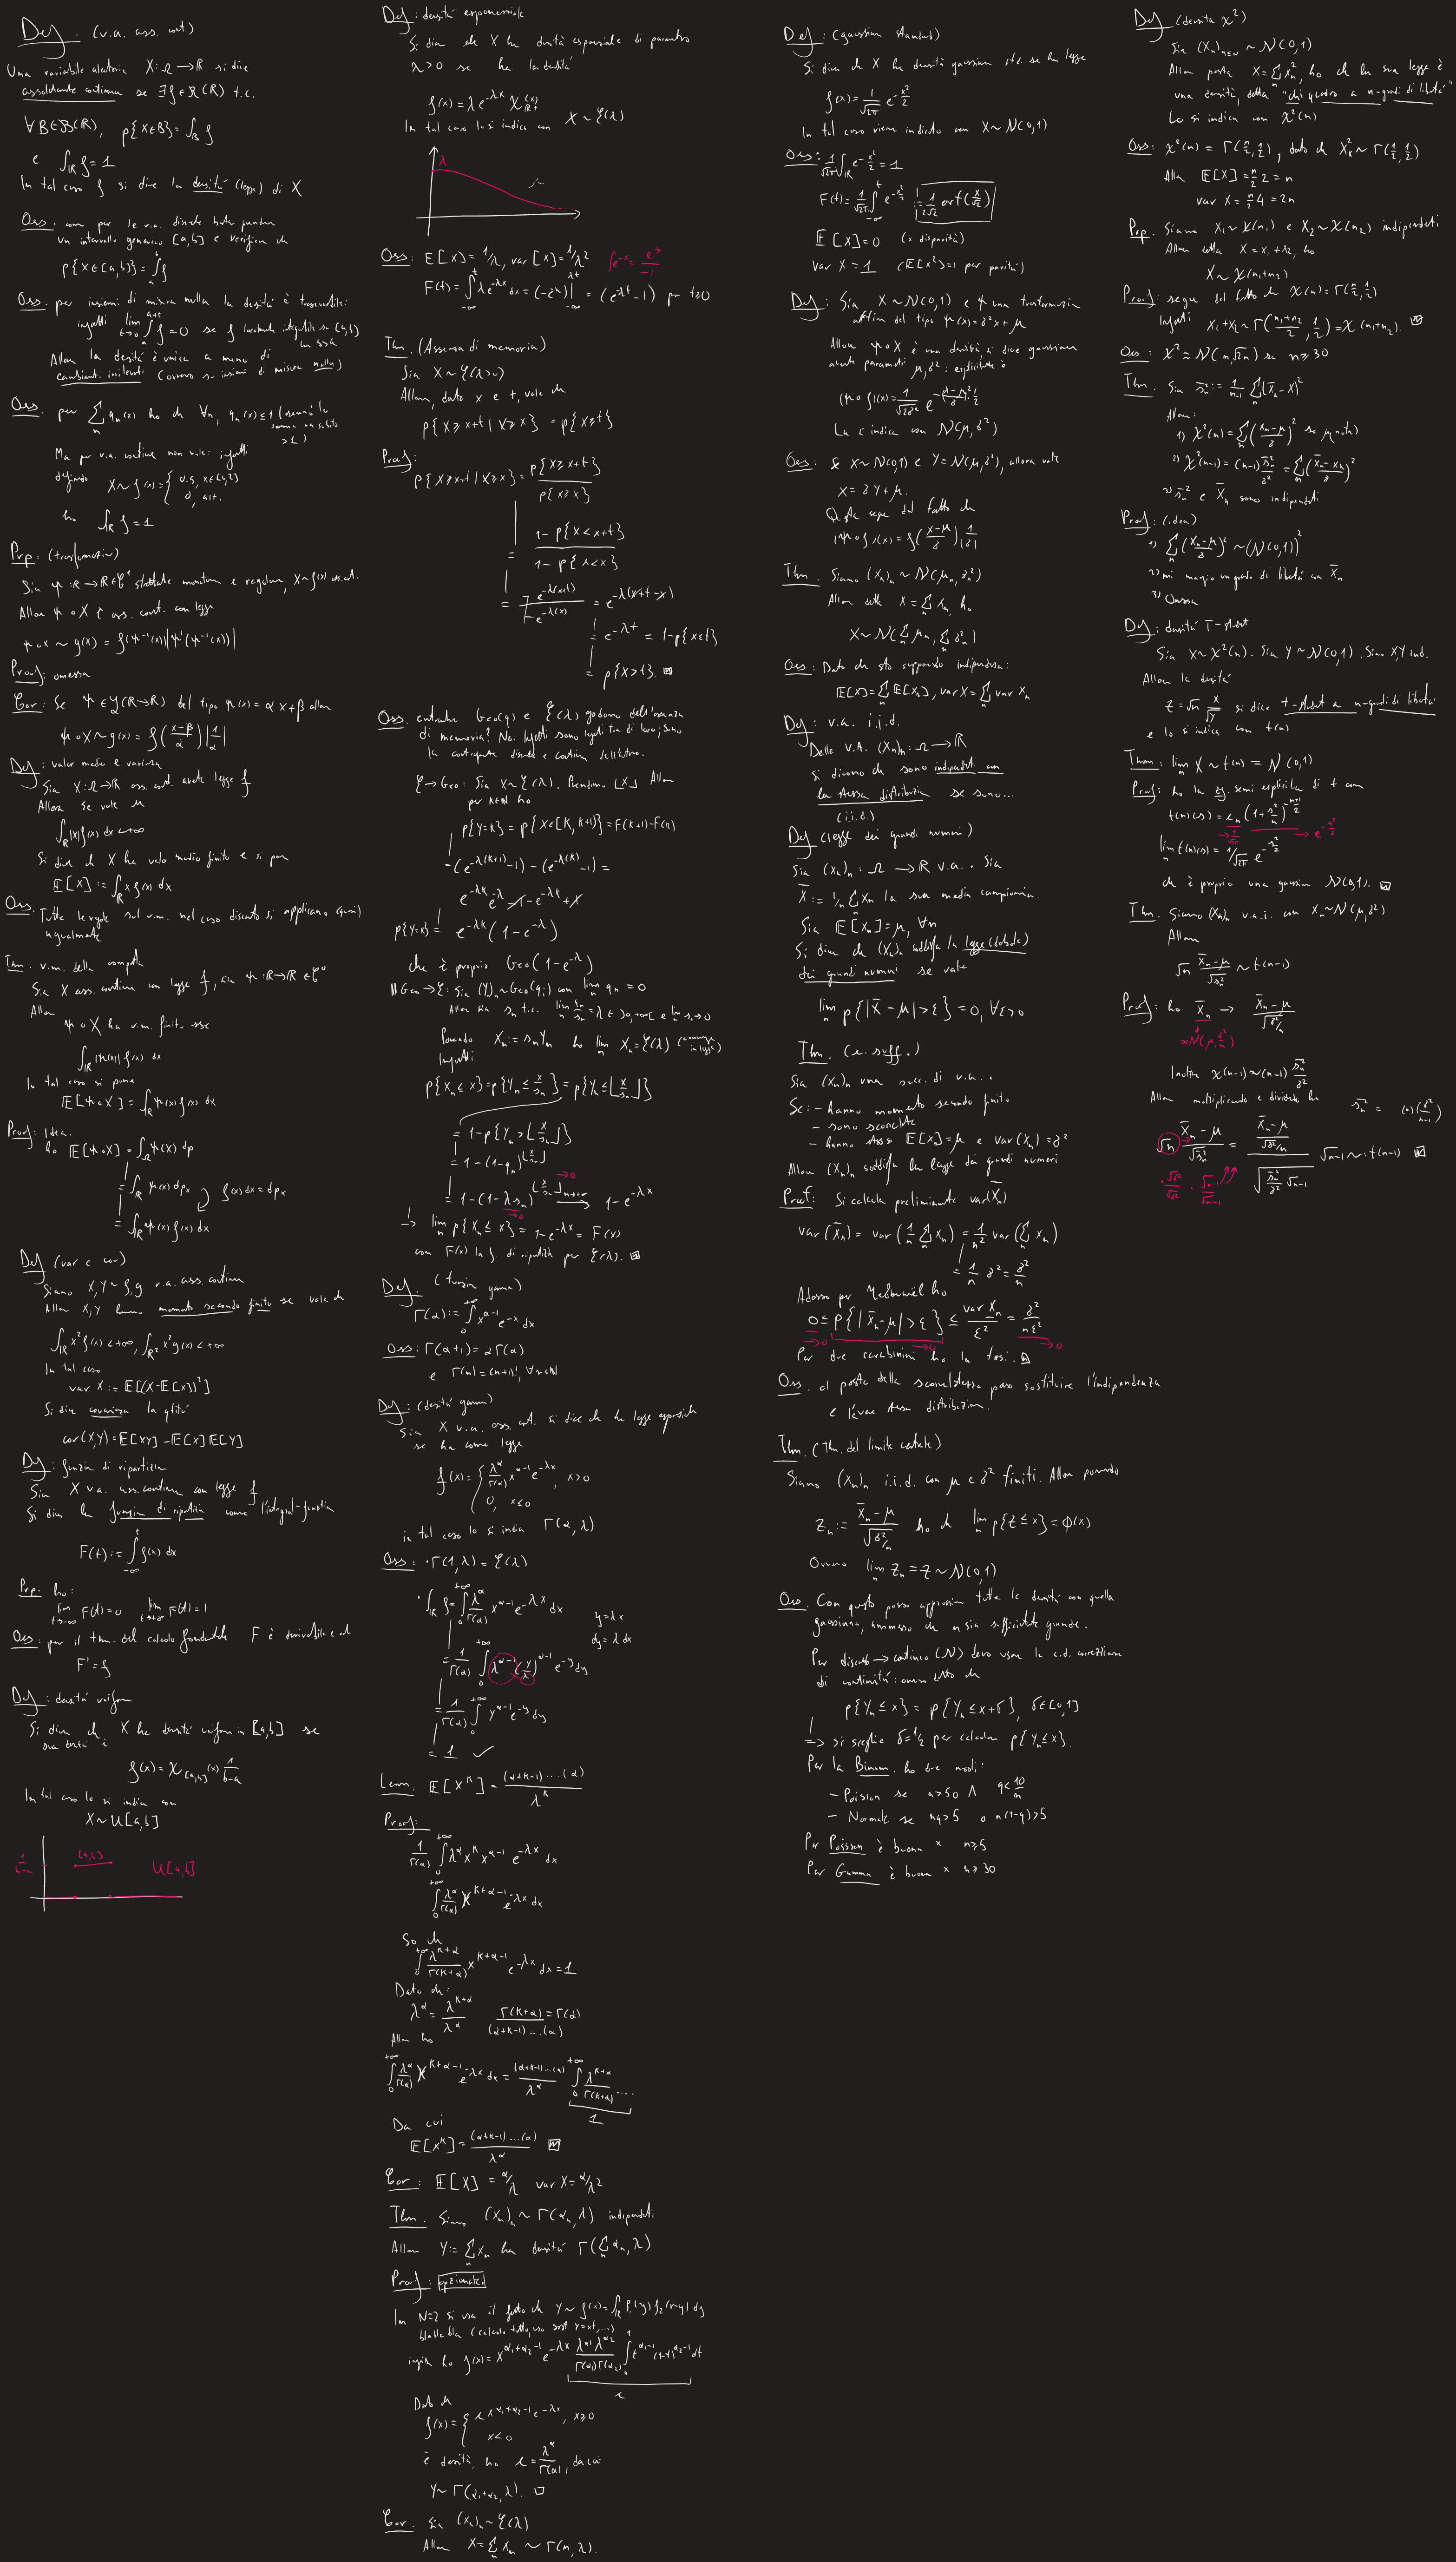 Def. (v.a. ass. cont)
Una variabile aleatoria X: Ω → ℝ si dice
assolutamente continua se ∃ f ∈ R(ℝ) t.c.
∀B∈B(ℝ), p{X∈B} = ∫_B f
e ∫_ℝ f = 1
In tal caso f si dice la densità (legge) di X
Oss. come per le v.a. discrete basta prendere
un intervallo generico [a,b] e verificare ch
p{X∈[a,b]} = ∫_a^b f
Oss. per insiemi di misura nulla la densità è trascurabile:
infatti lim_{t→0} ∫_a^{a+t} f = 0 se f localmente integrabile su [a,b]
Allora la densità è unica a meno di
cambiamenti irrilevanti (ovvero su insiemi di misura nulla)
Oss. per Σ_n q_n(x) ho che ∀n, q_n(x) ≤ 1 (sennò la
somma va subito
>1)
Ma per v.a. continue non vale: infatti
definendo X ~ f(x) = {
0, alt.
ho ∫_ℝ f = 1
Prp: (trasformazioni)
Sia ψ: ℝ→ℝ ∈ C¹ strettamente monotona e regolare, X~f(x) ass. cont.
Allora ψ∘X è ass. cont. con legge
ψ∘X ~ g(x) = f(ψ⁻¹(x)) |ψ'(ψ⁻¹(x))|
Proof: omessa
Cor: Se ψ ∈ L(ℝ→ℝ) del tipo ψ(x) = αx+β allora
ψ∘X ~ g(x) = f((x-β)/α) |1/α|
Def: valor medio e varianza
Sia X: Ω→ℝ ass. cont. avente legge f
Allora se vale
∫_ℝ |x| f(x) dx < +∞
Si dice ch X ha valor medio finito e si pone
E[X] := ∫_ℝ x f(x) dx
Oss. Tutte le regole sul v.m. nel caso discreto si applicano (quasi)
ugualmente
Thm. v.m. della composta
Sia X ass. continua con legge f, sia ψ: ℝ→ℝ ∈ C⁰
Allora
ψ∘X ha v.m. finito sse
∫_ℝ |ψ(x)| f(x) dx
In tal caso si pone
E[ψ∘X] = ∫_ℝ ψ(x) f(x) dx
Proof: Idea.
ho E[ψ∘X] = ∫_Ω ψ(X) dp
= ∫_ℝ ψ(x) dp_x f(x) dx = dp_x
= ∫_ℝ ψ(x) f(x) dx
Def (var e cov)
Siano X,Y ~ f,g v.a. ass. continue
Allora X,Y hanno momento secondo finito se vale ch
∫_ℝ x² f(x) < +∞, ∫_ℝ x² g(x) < +∞
In tal caso
var X := E[(X-E[X])²]
Si dice covarianza la qtità
cov(X,Y) = E[XY] - E[X]E[Y]
Def: funzione di ripartizione
Sia X v.a. ass. continua con legge f
Si dice la funzione di ripartiz. come l'integral-funzione
F(t) := ∫_{-∞}^t f(x) dx
Prp. ho:
lim_{t→-∞} F(t) = 0 lim_{t→+∞} F(t) = 1
Oss: per il thm. del calcolo fondamentale F è derivabile e vale
F' = f
Def: densità uniforme
Si dice ch X ha densità uniforme in [a,b] se
sua densità è
f(x) = χ_[a,b](x) 1/(b-a)
In tal caso lo si indica con
X ~ U[a,b]
1/(b-a) [a,b] U[a,b]
Def: densità esponenziale
Si dice che X ha densità esponenziale di parametro
λ>0 se ha la densità
f(x) = λe^{-λx} χ_{ℝ+}(x)
In tal caso lo si indica con X ~ ℰ(λ)
λ
Oss: E[X] = 1/λ, var[X] = 1/λ² ∫e^{-x} = e^{-x}/-1
F(t) = ∫_{-∞}^t λe^{-λx} dx = (-e^{-x})|_{-∞}^{λt} = (e^{-λt} - 1) per t≥0
Thm. (Assenza di memoria)
Sia X ~ ℰ(λ>0)
Allora, dato x e t, vale ch
p{X≥x+t | X≥x} = p{X≥t}
Proof:
p{X≥x+t | X≥x} = p{X≥x+t} / p{X≥x}
= 1-p{X<x+t} / 1-p{X<x}
= -e^{-λ(x+t)} / -e^{-λ(x)} = e^{-λ(x+t-x)}
= e^{-λt} = 1-p{X≤t}
= p{X>t}.
Oss. entrambe Geo(q) e ℰ(λ) godono dell'assenza
di memoria? No. Infatti sono legati tra di loro; sono
la controparte discreta e continua dell'altro.
ℰ→Geo: Sia X~ℰ(λ). Prendiamo ⌊X⌋. Allora
per k∈ℕ ho
p{Y=k} = p{X∈[k,k+1)} = F(k+1)-F(k)
-(e^{-λ(k+1)}-1) - (e^{-λ(k)}-1) =
e^{-λk} e^{-λ} -1 - e^{-λk} + 1
p{Y=k} = e^{-λk}(1-e^{-λ})
che è proprio Geo(1-e^{-λ})
Geo→ℰ: Sia (Y)_n ~ Geo(q_i) con lim_n q_n = 0
Allora sia s_n t.c. lim_n q_n/s_n = λ ∈ ]0,+∞[ e lim_n s_n → 0
Ponendo X_n := s_n Y_n ho lim_n X_n = ℰ(λ) (converge in legge)
Infatti
p{X_n ≤ x} = p{Y_n ≤ x/s_n} = p{Y_n ≤ ⌊x/s_n⌋}
= 1-p{Y_n > ⌊x/s_n⌋}
= 1-(1-q_n)^{⌊x/s_n⌋} →0
= 1-(1-λs_n)^{⌊x/s_n⌋} →_{n→+∞} 1-e^{-λx}
→0
→ lim_n p{X_n ≤ x} = 1-e^{-λx} = F(x)
con F(x) la f. di ripartiz. per ℰ(λ).
Def. (funzione gamma)
Γ(α) := ∫_0^{+∞} x^{α-1} e^{-x} dx
Oss: Γ(α+1) = αΓ(α)
e Γ(n) = (n+1)!, ∀n∈ℕ
Def: (densità gamma)
Sia X v.a. ass. cont. si dice che ha legge esponenziale
se ha come legge
f(x) = { λ^α/Γ(α) x^{α-1} e^{-λx}, x>0
0, x≤0
in tal caso lo si indica Γ(α,λ)
Oss: · Γ(1,λ) = ℰ(λ)
· ∫_ℝ f = ∫_0^{+∞} λ^α/Γ(α) x^{α-1} e^{-λx} dx
y = λx
dy = λ dx
= 1/Γ(α) ∫_0^{+∞} λ^{α-1} (y/λ)^{α-1} e^{-y} dy
= 1/Γ(α) ∫_0^{+∞} y^{α-1} e^{-y} dy
= 1 ✓
Lem: E[X^k] = (α+k-1)...(α) / λ^k
Proof:
1/Γ(α) ∫_0^{+∞} λ^α x^k x^{α-1} e^{-λx} dx
∫_0^{+∞} λ^α/Γ(α) x^{k+α-1} e^{-λx} dx
So ch
∫_0^{+∞} λ^{k+α}/Γ(k+α) x^{k+α-1} e^{-λx} dx = 1
Dato ch:
λ^α = λ^{k+α}/λ^α Γ(k+α)/(α+k-1)...(α) = Γ(α)
Allora ho
∫_0^{+∞} λ^α/Γ(α) x^{k+α-1} e^{-λx} dx = (α+k-1)...(α)/λ^α ∫_0^{+∞} λ^{k+α}/Γ(k+α) ....
1
Da cui
E[X^k] = (α+k-1)...(α) / λ^α
Cor: E[X] = α/λ var X = α/λ²
Thm. Siano (X_n)_n ~ Γ(α_n,λ) indipendenti
Allora Y := Σ_n X_n ha densità Γ(Σ_n α_n, λ)
Proof: opzionale.
In N=2 si usa il fatto ch Y ~ f(x) = ∫_ℝ f_1(y) f_2(x-y) dy
bla bla bla (calcolo tutto, uso sost y=xt, ...)
infine ho f(x) = x^{α1+α2-1} e^{-λx} λ^{α1}λ^{α2}/Γ(α1)Γ(α2) ∫_0^1 t^{α1-1} (1-t)^{α2-1} dt
c
Dato ch
f(x) = { c x^{α1+α2-1} e^{-λx}, x≥0
x<0
è densità, ho c = λ^α/Γ(α), da cui
Y ~ Γ(α1+α2, λ).
Cor. Sia (X_n)_n ~ ℰ(λ)
Allora X = Σ_n X_n ~ Γ(n,λ).
Def: (gaussiana standard)
Si dice ch X ha densità gaussiana std. se ha legge
f(x) = 1/√2π e^{-x²/2}
In tal caso viene indicato con X ~ N(0,1)
Oss: 1/√2π ∫_ℝ e^{-x²/2} = 1
F(t) = 1/√2π ∫_{-∞}^t e^{-x²/2} := 1/2√2 erf(x/√2)
E[X] = 0 (x disparità)
var X = 1 (E[X²]=1 per parità)
Def: Sia X ~ N(0,1) e ψ una trasformazione
affine del tipo ψ(x) = σ²x + μ
Allora ψ∘X è una densità si dice gaussiana
avente parametri μ,σ²; esplicitata è
(ψ∘f)(x) = 1/√2σ² e^{-((x-μ)/σ)² 1/2}
La si indica con N(μ,σ²)
Oss: Se X~N(0,1) e Y=N(μ,σ²), allora vale
X = σY+μ.
Questo segue dal fatto che
(ψ∘f)(x) = f((x-μ)/σ) 1/|σ|
Thm. Siano (X_n)_n ~ N(μ_n,σ_n²)
Allora detta X = Σ_n X_n, ho
X ~ N(Σ_n μ_n, Σ_n σ_n²)
Oss: Dato ch sto supponendo indipendenza:
E[X] = Σ_n E[X_n], var X = Σ_n var X_n
Def: v.a. i.i.d.
Delle V.A. (X_n)_n: Ω→ℝ
si dicono che sono indipendenti con
la stessa distribuzione se sono...
(i.i.d.)
Def (legge dei grandi numeri)
Sia (X_n)_n: Ω → ℝ v.a.. Sia
X̄ := 1/n Σ_n X_n la sua media campionaria.
Sia E[X_n] = μ, ∀n
Si dice ch (X_n)_n soddisfa la legge (debole)
dei grandi numeri se vale
lim_n p{|X̄-μ|>ε} = 0, ∀ε>0
Thm. (c. suff.)
Sia (X_n)_n una succ. di v.a..
Se: - hanno momento secondo finito
- sono scorrelate
- hanno stesso E[X]=μ e var(X_n)=σ²
Allora (X_n)_n soddisfa la legge dei grandi numeri
Proof: Si calcola preliminarmente var(X̄_n)
var(X̄_n) = var(1/n Σ_n X_n) = 1/n² var(Σ_n X_n)
= 1/n σ² = σ²/n
Adesso per ho
0 ≤ p{|X̄_n-μ|>ε} ≤ var X_n/ε² = σ²/nε²
→0 →0 →0
Per due carabinieri ho la tesi.
Oss. al posto della scorrelatezza posso sostituire l'indipendenza
e l'avere stessa distribuzione.
Thm. (Thm. del limite centrale)
Siano (X_n)_n i.i.d. con μ e σ² finiti. Allora ponendo
Z_n := (X̄_n-μ)/√(σ²/n) ho ch lim_n p{Z≤x} = Φ(x)
Ovvero lim_n Z_n = Z ~ N(0,1)
Oss. Con questo posso approssimare tutte le densità con quella
gaussiana, ammesso che n sia sufficientemente grande.
Per discreto → continuo (N) devo usare la c.d. correzione
di continuità: ch
p{Y_n ≤ x} = p{Y_n ≤ x+δ}, δ∈[0,1]
=> si sceglie δ=1/2 per calcolare p{Y_n≤x}.
Per la Binom. ho due modi:
- Poisson se n>50 ∧ q<10/n
- Normale se nq>5 o n(1-q)>5
Per Poisson è buona x n≥5
Per Gamma è buona x n≥30
Def (densità χ²)
Sia (X_n)_{n∈ℕ} ~ N(0,1)
Allora posta X = Σ_n X_n², ho ch la sua legge è
una densità, detta "chi quadro a n-gradi di libertà"
Lo si indica con χ²(n)
Oss: χ²(n) = Γ(n/2,1/2), dato ch X_k² ~ Γ(1/2,1/2)
Allora E[X] = n/2 2 = n
var X = n/2 4 = 2n
Prp. Siano X_1~χ(n_1) e X_2~χ(n_2) indipendenti
Allora detta X = X_1+X_2, ho
X ~ χ(n_1+n_2)
Proof: segue dal fatto ch χ(n) = Γ(n/2,1/2)
Infatti X_1+X_2 ~ Γ((n_1+n_2)/2, 1/2) = χ(n_1+n_2).
Oss: χ² ≈ N(n,√2n) se n≥30
Thm. Sia s̄_n² := 1/(n-1) Σ_n (X̄_n-X)²
Allora:
1) χ²(n) = Σ_n ((X_n-μ)/σ)² se μ nota)
2) χ²(n-1) = (n-1) s̄_n²/σ² = Σ_n ((X̄_n-X_n)/σ)²
3) s̄_n² e X̄_n sono indipendenti
Proof: (idea)
1) Σ_n ((X_n-μ)/σ)² ~ (N(0,1))²
2) mi mangio un grado di libertà con X̄_n
3) Omessa
Def: densità T-student
Sia X~χ²(n). Sia Y~N(0,1). Siano X,Y ind.
Allora la densità
Z = √n X/√Y si dice t-student a n-gradi di libertà
e lo si indica con t(n)
Thm: lim_n X ~ t(n) = N(0,1)
Proof: ho la eq. semi esplicita di t con
t(n)(s) = c_n (1+s²/n)^{-(n+1)/2}
→ 1/√2π → e^{-s²/2}
lim_n t(n)(s) = 1/√2π e^{-s²/2}
che è proprio una gaussiana N(0,1).
Thm. Siano (X_n)_n v.a.i. con X_n~N(μ,σ²)
Allora
√n (X̄_n-μ)/√s̄_n² ~ t(n-1)
Proof: ho X̄_n → (X̄_n-μ)/√(σ²/n)
~N(μ,σ²/n)
Inoltre χ(n-1) ~ (n-1) s̄_n²/σ²
Allora moltiplicando e dividendo ho
√n (X̄_n-μ)/√s̄_n² = (X̄_n-μ)/√(σ²/n) / √(s̄_n²/σ²) √(n-1) √(n-1) ~ t(n-1)
· √σ²/√σ² · √(n-1)/√(n-1)